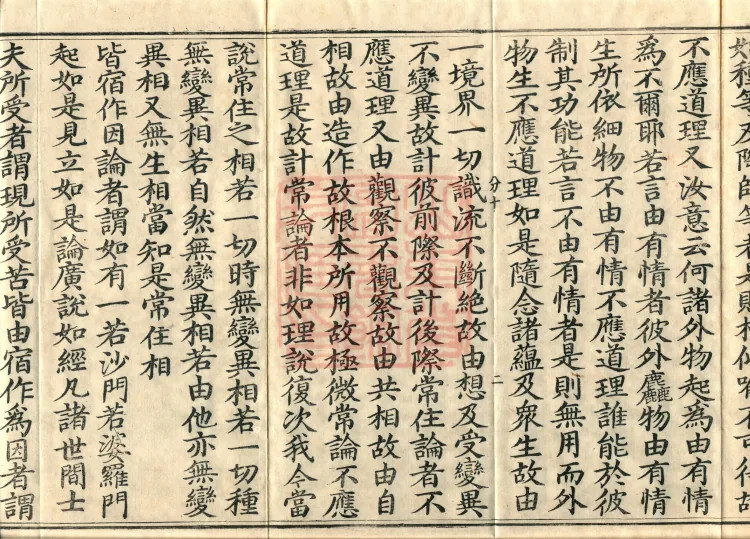 不應道理又汝意云何諸外物起為由有情
為不爾耶若言由有情者彼外麤物由有情
生所依細物不由有情不應道理誰能於彼
制其功能若言不由有情者是則無用而外
物生不應道理如是隨念諸蘊及眾生故由
分十 二
一境界一切識流不斷絕故由想及受變異
不變異故計彼前際及計後際常住論者不
應道理又由觀察不觀察故由共相故由自
相故由造作故根本所用故極微常論不應
道理是故計常論者非如理說復次我今當
說常住之相若一切時無變異相若一切種
無變異相若自然無變異相若由他亦無變
異相又無生相當知是常住相
皆宿作因論者謂如有一若沙門若婆羅門
起如是見立如是論廣說如經凡諸世間士
夫所受者謂現所受苦皆由宿作為因者謂